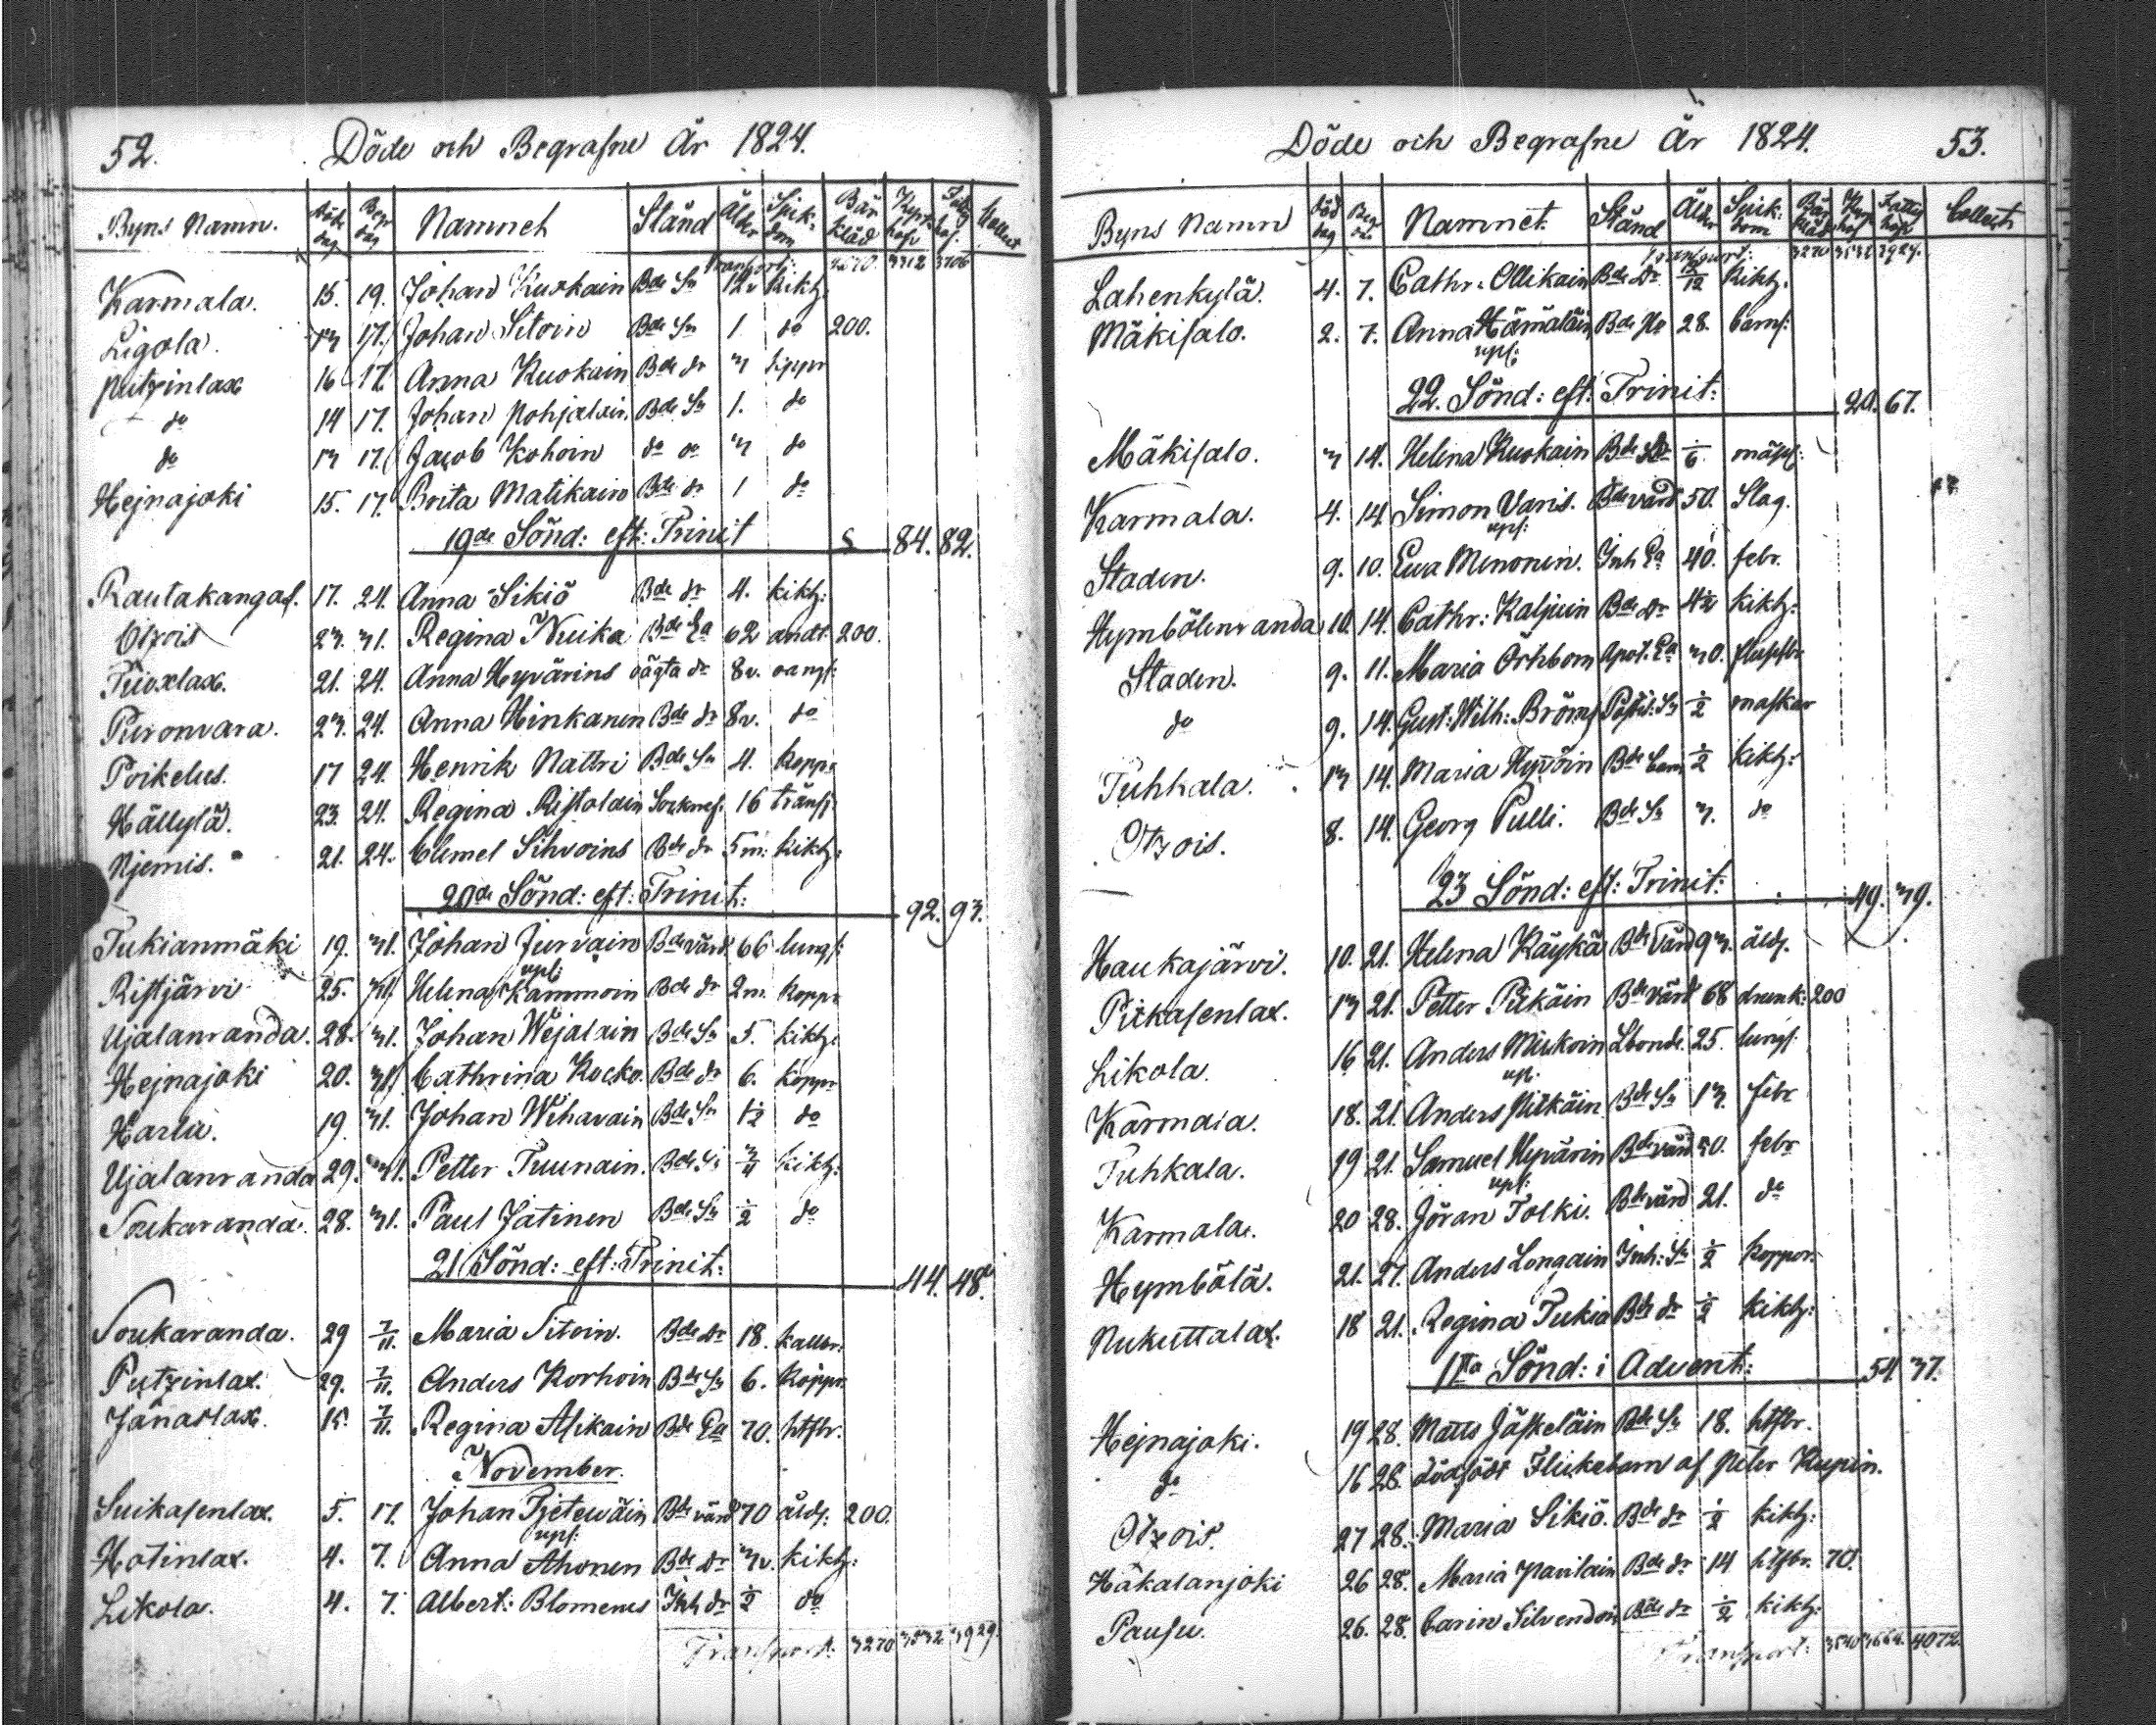 52. Döde och Begrafne År 1824.
Byns Namn. död dag Begr dag Namnet Stånd Ålder Sjuk: dom Bår kläd Kyrk håf Fattig håf. Collect
Transport: 3312 3706
Karmala. 15. 19. Johan Kuokain Bde Sn 12v kikh:
Ligola. 13 17. Johan Sitoin Bde Sn 1. do 200.
Putzinlax 16 17. Anna Kuokain Bde dr 3 koppr
do 14 17. Johan Pohjalain. Bde Sn 1. do
do 13 17. Jacob Kohoin do do 3 do
Hejnajoki 15. 17. Brita Matikain Bde dr 1 do
19de Sönd: eft: Trinit 84. 82.
Rautakangas. 17. 24. Anna Sikiö Bde dr 4. kikh:
Otzois 23. 31. Regina Nuika Bde Ea 62 andt. 200.
Tiuoxlax. 21. 24. Anna Hyvärins dr 8v.
Puronvara. 23. 24. Anna Hinkanen Bde dr 8v. do
Poikelus. 17 24. Henrik Nattri Bde Sn 4. koppr
Hällylä. 23. 24. Regina Ristolain Socknes. 16 tränsj.
Njemis. 21. 24. Clemet Sihvoins Bde dr 5m: kikh:
20de Sönd: eft: Trinit: 92. 93.
Tukianmäki 19. 31. Johan Jurvain Bde värd 66 lungs:
upl:
Ristjärvi 25. 31. Helena Kammoin Bde dr 2m. koppr
Ujalanranda. 28. 31. Johan Wejalain Bde Sn 5. kikh:
Hejnajoki 20. 31. Cathrina Kocko. Bde dr 6. koppr
Harlu. 19. 31. Johan Wihavain Bde Sn 1½ do
Ujalanranda 29. 31. Petter Tuunain. Bde Sn kikh:
Soukaranda. 28. 31. Paul Jatinen Bde Sn ½ do
21 Sönd: eft: Trinit: 44. 48.
Soukaranda. 29 7/11. Maria Sitoin. Bde Dr 18. kallbr:
Putzinlax. 29. 7/11. Anders Korhoin Bde Sn 6. koppr.
Jänaslax. 15. 7/11. Regina Asikain Bde Ea 70. htsbr.
November.
Suikasenlax. 5. 17. Johan Tjeteväin Bde värd 70 ålds: 200.
upl:
Hotinlax. 4. 7. Anna Ahonen Bde Dr 3v. kikh:
Likola. 4. 7. Albert: Blomenes Inh dr ½ do
Transport: 3270 3532 3929.
Döde och Begrafne År 1824. 53.
Byns Namn död dag Beg da. Namnet. Stånd Ålder Sjuk: dom Bår kläd Kyrk håf Fattig håf Collect
Transport: 3270 3532 3929.
Lahenkylä. 4. 7. Cathr: Ollikain Bde Dr kikh:
Mäkisalo. 2. 7. Anna Hämäläin Bde Hu 28. barns:
upl:
22. Sönd: eft: Trinit: 20. 67.
Mäkisalo. 3 14. Helena Kuokain Bde Dr mäsel:
Karmala. 4. 14. Simon Varis. Bde värd 50. Slag.
upl:
Staden. 9. 10. Ewa Menonen. Inh Ea 40. febr.
Hymbölenranda 10. 14. Cathr: Kaljuin Bde Dr 4½ kikh:
Staden. 9. 11. Maria Örhbom Apot. Ea 30. flussfbr
do 9. 14. Gust: Wilh: Bröms Postil: Sn ½ maskar
Tuhkala. 13 14. Maria Hyvöin Bde barn ½ kikh:
Otzois. 8. 14. Georg Pulli. Bde Sn 3. do
23 Sönd: eft: Trinit: 49. 39.
Haukajärvi. 10. 21. Helena Käykä Bde värd 93. ålds.
Pitkäsenlax. 13 21. Petter Pitkäin Bde värd 68 drunk: 200
Likola. 16 21. Anders Miskoin Lbonde. 25. lungs:
upl.
Karmala. 18. 21. Anders Pitkäin. Bde Sn 13. febr
Tuhkala. 19 21. Samuel Hyvärin Bde värd 50. febr
upl:
Karmala. 20 28. Jöran Tolki. Bde värd 21. do
Hymbölä. 21. 27. Anders Longain Inh: Sn ½ koppor.
Nukuttalax. 18 21. Regina Tukia Bde dr ½ kikh:
1sta Sönd: i Advent: 54 37.
Hejnajoki. 19 28. Matts Jäskeläin Bde Sn 18. htsbr.
do 16 28. dödfödt Flickebarn af Peter Kupin.
Otzois. 27 28. Maria Sikiö. Bde dr ½ kikh:
Häkalanjoki 26 28. Maria Pavilain Bde dr 14 htsbr. 70.
Pausu. 26. 28. Carin Silvendoin Bde dr ½ kikh:
Transport: 3540 3664. 4072.